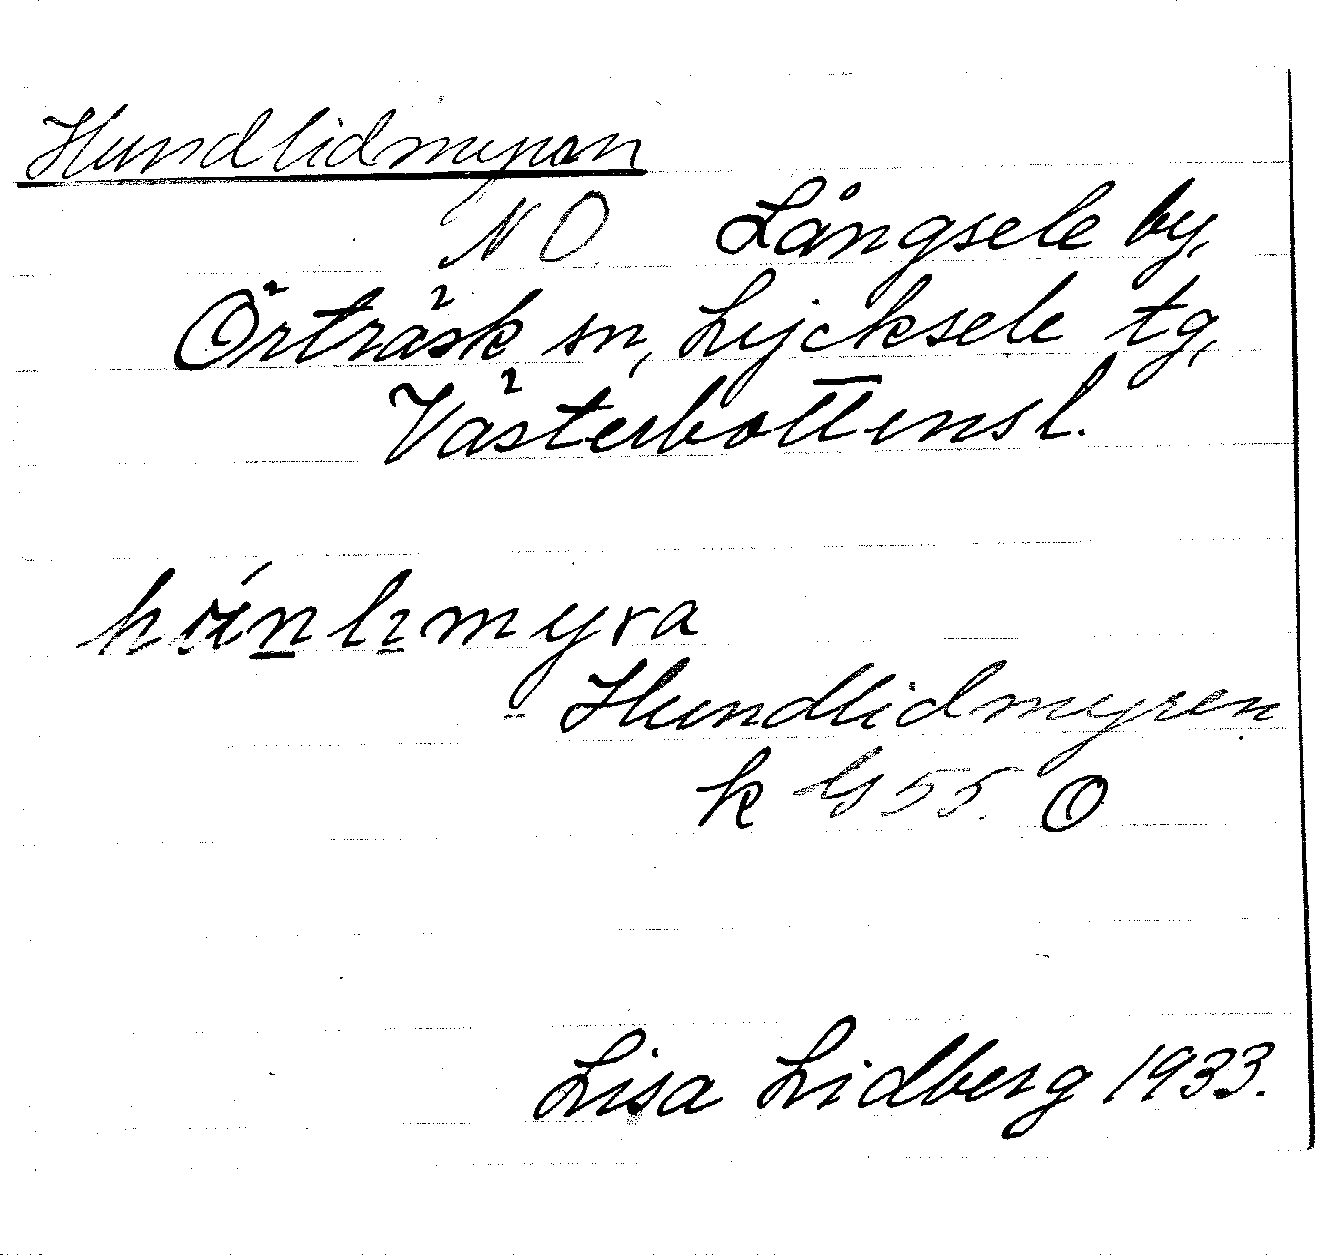 Hundlidmyran
NO. Långsele by,
Örträsk sn, Lycksele tg,
Västerbottens l.
Hundlidmyren
k G 55. O
Lisa Lidberg 1933.